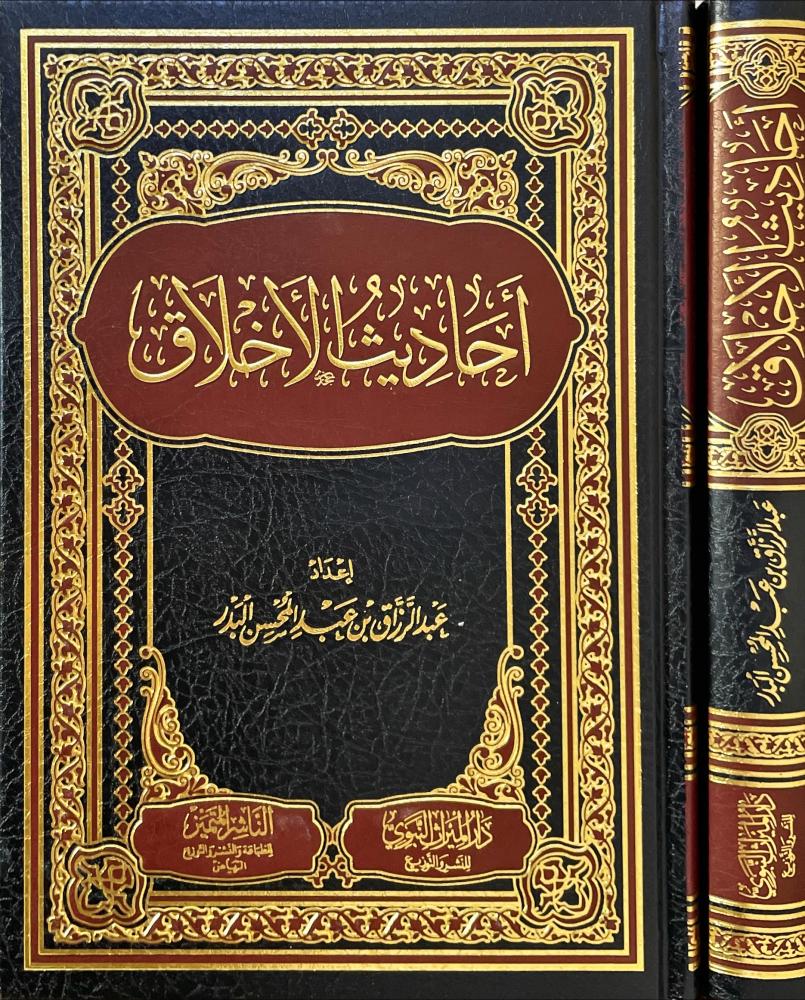 أَحَادِيثُ الأَخْلَاقِ
إعْدَادُ
عَبْدِ الرَّزَّاقِ بْنِ عَبْدِ الْمُحْسِنِ الْبَدْرِ
دَارُ المِيرَاثِ النَّبَوِيِّ
لِلنَّشْرِ وَالتَّوْزِيعِ
النَّاشِرُ المُتَمَيِّزُ
لِلطِّبَاعَةِ وَالنَّشْرِ وَالتَّوْزِيعِ
الرِّيَاضُ
أَحَادِيثُ الأَخْلَاقِ
عَبْدِ الرَّزَّاقِ بْنِ عَبْدِ الْمُحْسِنِ الْبَدْرِ
دَارُ المِيرَاثِ النَّبَوِيِّ
لِلنَّشْرِ وَالتَّوْزِيعِ